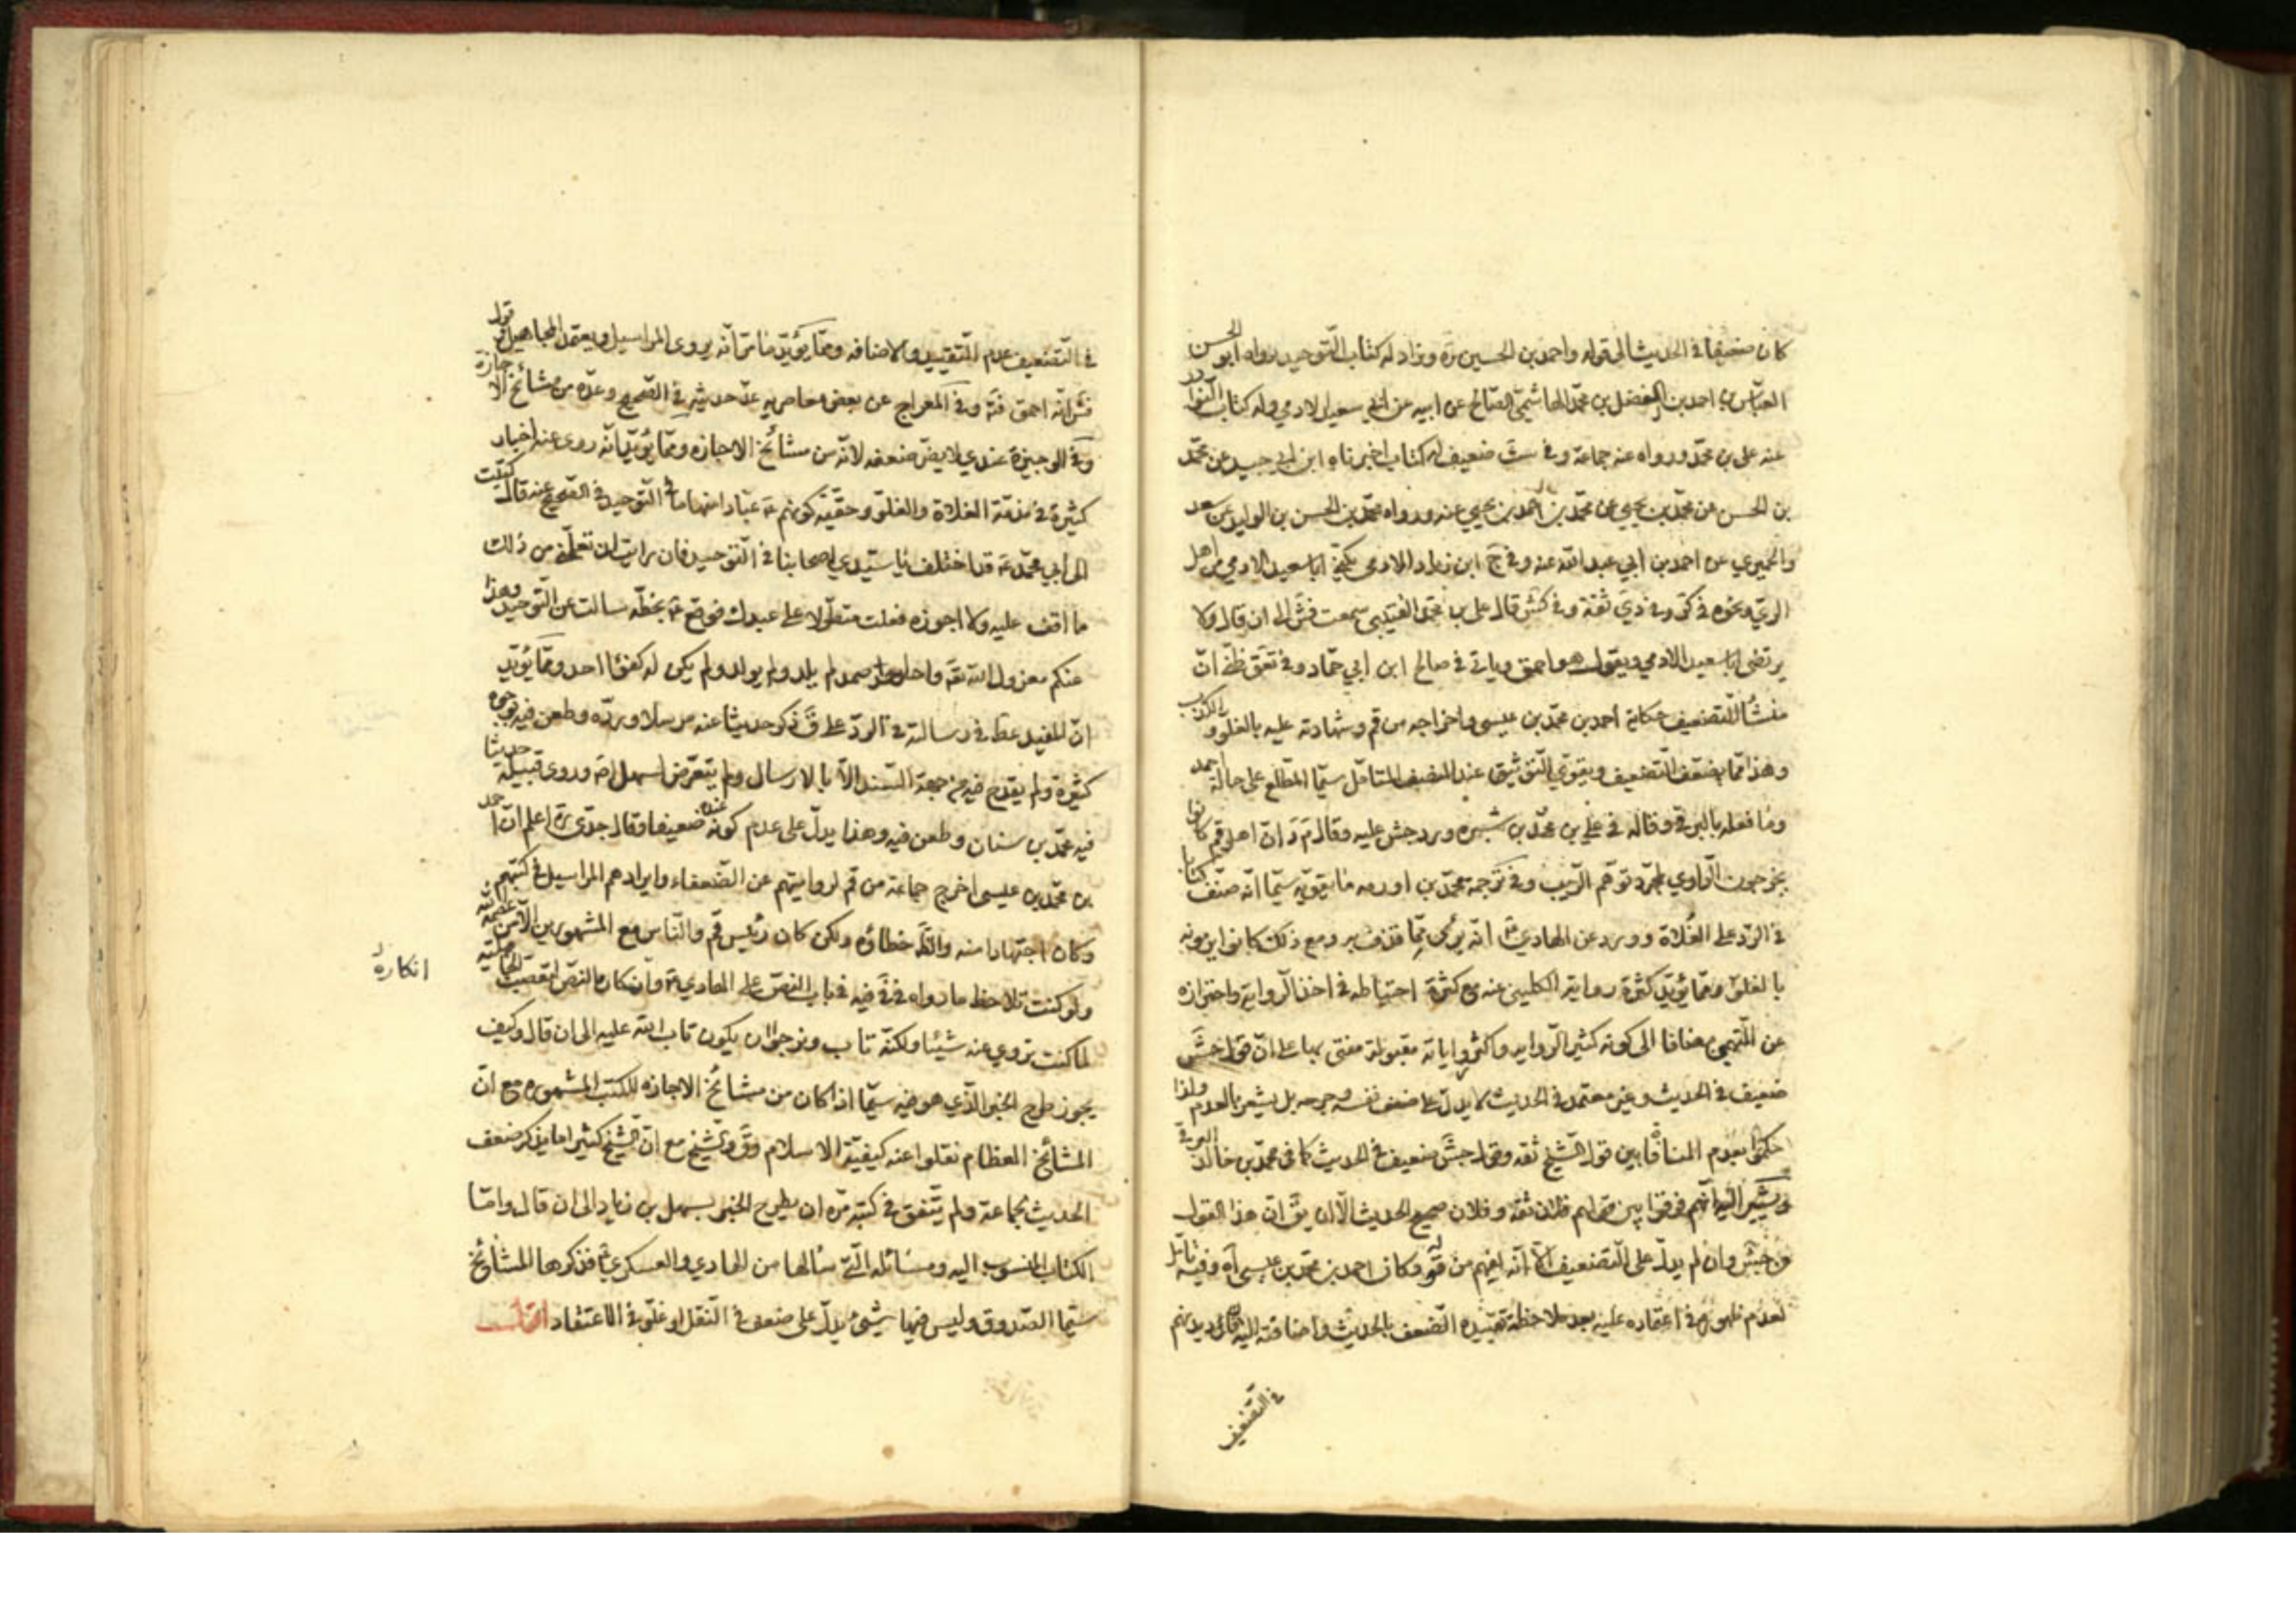 كان ضعيفا في الحديث الى قوله واحمد بن الحسين رة وزاد له كتاب التوحيد رواه ابو الحسن
العباس بن احمد بن الفضل بن محمد الهاشمي الصالحي عن ابيه عن ابي سعيد الادمي وله كتاب النوادر
عنه علي بن محمد ورواه عنه جماعة وفي ست ضعيف له كتاب اخبرنا به ابن ابي جيد عن محمد
بن الحسن عن محمد بن يحيى عن محمد بن احمد بن يحيى عنه ورواه محمد بن الحسن بن الوليد عن سعد
والحميري عن احمد بن ابي عبد الله عنه وفي ج ابن زياد الادمي يكنى ابا سعيد الادمي من اهل
الري ونحوه في كر وفي دي ثقة وفي كش قال علي بن محمد القتيبي سمعت فش الى ان قال ولا
يرتضي ابا سعيد الادمي ويقول هو احمق وياتي في صالح ابن ابي حماد وفي تعق ظني ان
منشأ التضعيف حكاية احمد بن محمد بن عيسى واخراجه من قم وشهادته عليه بالغلو والكذب
وهذا مما يضعف التضعيف ويقوي التوثيق عند المنصف المتامل سيما المطلع على حالة احمد
وما فعله بالبرقي وقاله في علي بن محمد بن شيره ورد جش عليه وقال م د ان اهل قم كانوا
يخرجون الراوي بمجرد توهم الريب وفي ترجمة محمد بن اورمه ما يقويه سيما انه صنف كتابا
في الرد على الغلاة وورد عن الهادي ع انه بري مما قذف به ومع ذلك كانوا يرمونه
بالغلو ومما يؤيد كثرة رواية الكليني عنه مع كثرة احتياطه في اخذ الرواية واحترازه
عن المتهمين مضافا الى كونه كثير الرواية واكثر رواياته مقبولة مفتى بها على ان قول جش
ضعيف في الحديث وغير معتمد في الحديث لا يدل على ضعف نفسه وجرحه بل يشعر بالعدم ولذا
حكموا بعدم المنافاة بين قول الشيخ ثقة وقول جش ضعيف في الحديث كما في محمد بن خالد البرقي
ويشير اليه انهم فرقوا بين قولهم فلان ثقة وفلان صحيح الحديث الا ان يق ان هذا القول
من جش وان لم يدل على التضعيف الا انه يفهم من قوله وكان احمد بن محمد بن عيسى اه وفيه تأمل
لعدم ظهوره في اعتماده عليه بعد ملاحظة تقييده الضعف بالحديث واضافته اليه كما ديدنهم
في التضعيف
في التضعيف عدم التقييد والاضافه ومما يؤيد ما مر انه يروي المراسيل ويعتمد المجاهيل وقول
فش انه احمق فت وفي المعراج عن بعض معاصريه عد حديثه في الصحيح وعده من مشائخ الاجازة
وفي الوجيزة عندي لا يضر ضعفه لانه من مشائخ الاجازه ومما يؤيد انه روى عنه اخبار
كثيرة في مذمة الغلاة والغلو وحقية كونهم ع عبادا منها ما في التوحيد في الصحيح عنه قال كتبت
الى ابي محمد ع قد اختلف يا سيدي اصحابنا في التوحيد فان رايت ان تعلمني من ذلك
ما اقف عليه ولا اجوزه فعلت متطولا على عبدك فوقع ع بخطه سالت عن التوحيد وهذا
عنكم معزول الله تعه واحد احد صمد لم يلد ولم يولد ولم يكن له كفوا احد ومما يؤيد
ان المفيد عطا في رسالته في الرد على ق ذكر حديثا عنه مرسلا ورده وطعن فيه بوجوه
كثيرة ولم يقدح فيه من جهة السند الا بالارسال ولم يتعرض لسهل اصه وروى قبيله حديثا
فيه محمد بن سنان وطعن فيه وهذا يدل على عدم كونه عنده ضعيفا وقال جدي ره اعلم ان احمد
بن محمد بن عيسى اخرج جماعة من قم لروايتهم عن الضعفاء وايرادهم المراسيل في كتبهم
وكان اجتهادا منه والظ خطاؤه ولكن كان رئيس قم والناس مع المشهورين الا من عصمه الله
ولو كنت تلاحظ ما رواه في في فيه في باب النص على الهادي ع وانكاره النص لتعصب الجاهلية
لما كنت تروي عنه شيئا ولكنه تاب ونرجو ان يكون تاب الله عليه الى ان قال وكيف
يجوز طرح الخبر الذي هو فيه سيما اذا كان من مشائخ الاجازه للكتب المشهوره مع ان
المشائخ العظام نقلوا عنه كثقة الاسلام وق والشيخ مع ان الشيخ كثيرا ما يذكر ضعف
الحديث بجماعة ولم يتفق في كتبه مرة ان يطرح الخبر بسهل بن زياد الى ان قال واما
الكتاب المنسوب اليه ومسائله التي سالها من الهادي والعسكري ع فذكرها المشائخ
سيما الصدوق وليس فيها شيئ يدل على ضعف في النقل او غلو في الاعتقاد
انكاره